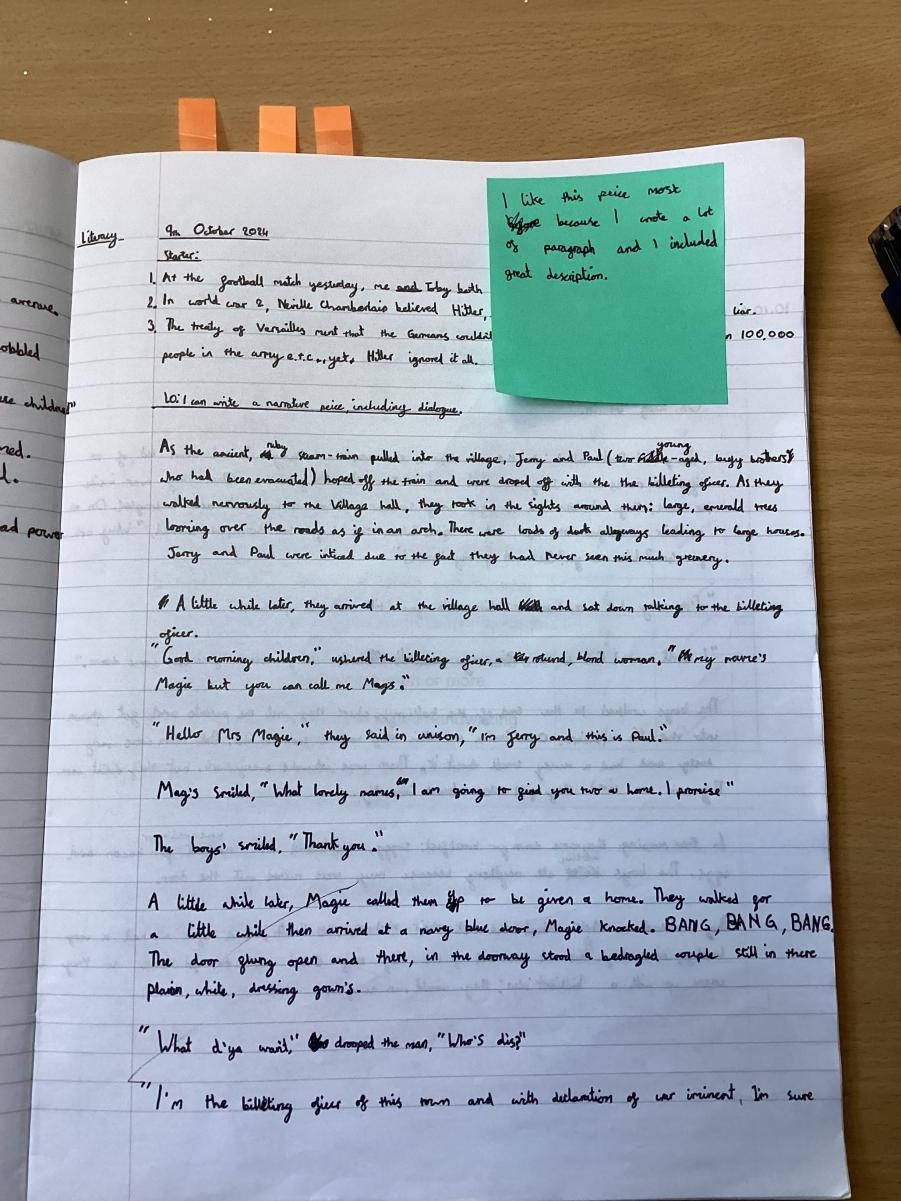 I like this peice most
because I wrote a lot
of paragraph and I included
great description.
Literacy
9th October 2024
Starter:
1. At the football match yesterday, me and Toby both
2. In world war 2, Neville Chamberlain believed Hitler, liar.
3. The treaty of Versailles ment that the Germans couldn't 100,000
people in the army e.t.c., yet, Hitler ignored it all.
LO: I can write a narrative peice, including dialogue.
As the ancient, ruby steam-train pulled into the village, Jerry and Paul (two young-aged, busy brothers
who had been evacuated) hoped off the train and were droped off with the the billeting oficer. As they
walked nervously to the Village hall, they took in the sights around them: large, emerald trees
looming over the roads as if in an arch. There were loads of dark alleyways leading to large houses.
Jerry and Paul were inticed due to the fact they had never seen this much greenery.
A little while later, they arrived at the village hall and sat down talking to the billeting
oficer.
"Good morning children," ushered the billeting oficer, a rotund, blond woman, "my name's
Magie but you can call me Mags."
"Hello Mrs Magie," they said in unison, "I'm Jerry and this is Paul."
Mag's smiled, "What lovely names, I am going to find you two a home. I promise"
The boys' smiled, "Thank you."
A little while later, Magie called them to be given a home. They walked for
a little while then arrived at a navy blue door, Magie knocked. BANG, BANG, BANG.
The door flung open and there, in the doorway stood a bedragled couple still in there
plain, white, dressing gown's.
"What d'ya want," drooped the man, "Who's dis?"
"I'm the billeting oficer of this town and with declaration of war iminent, I'm sure
avenue.
obbled
children"
ad power